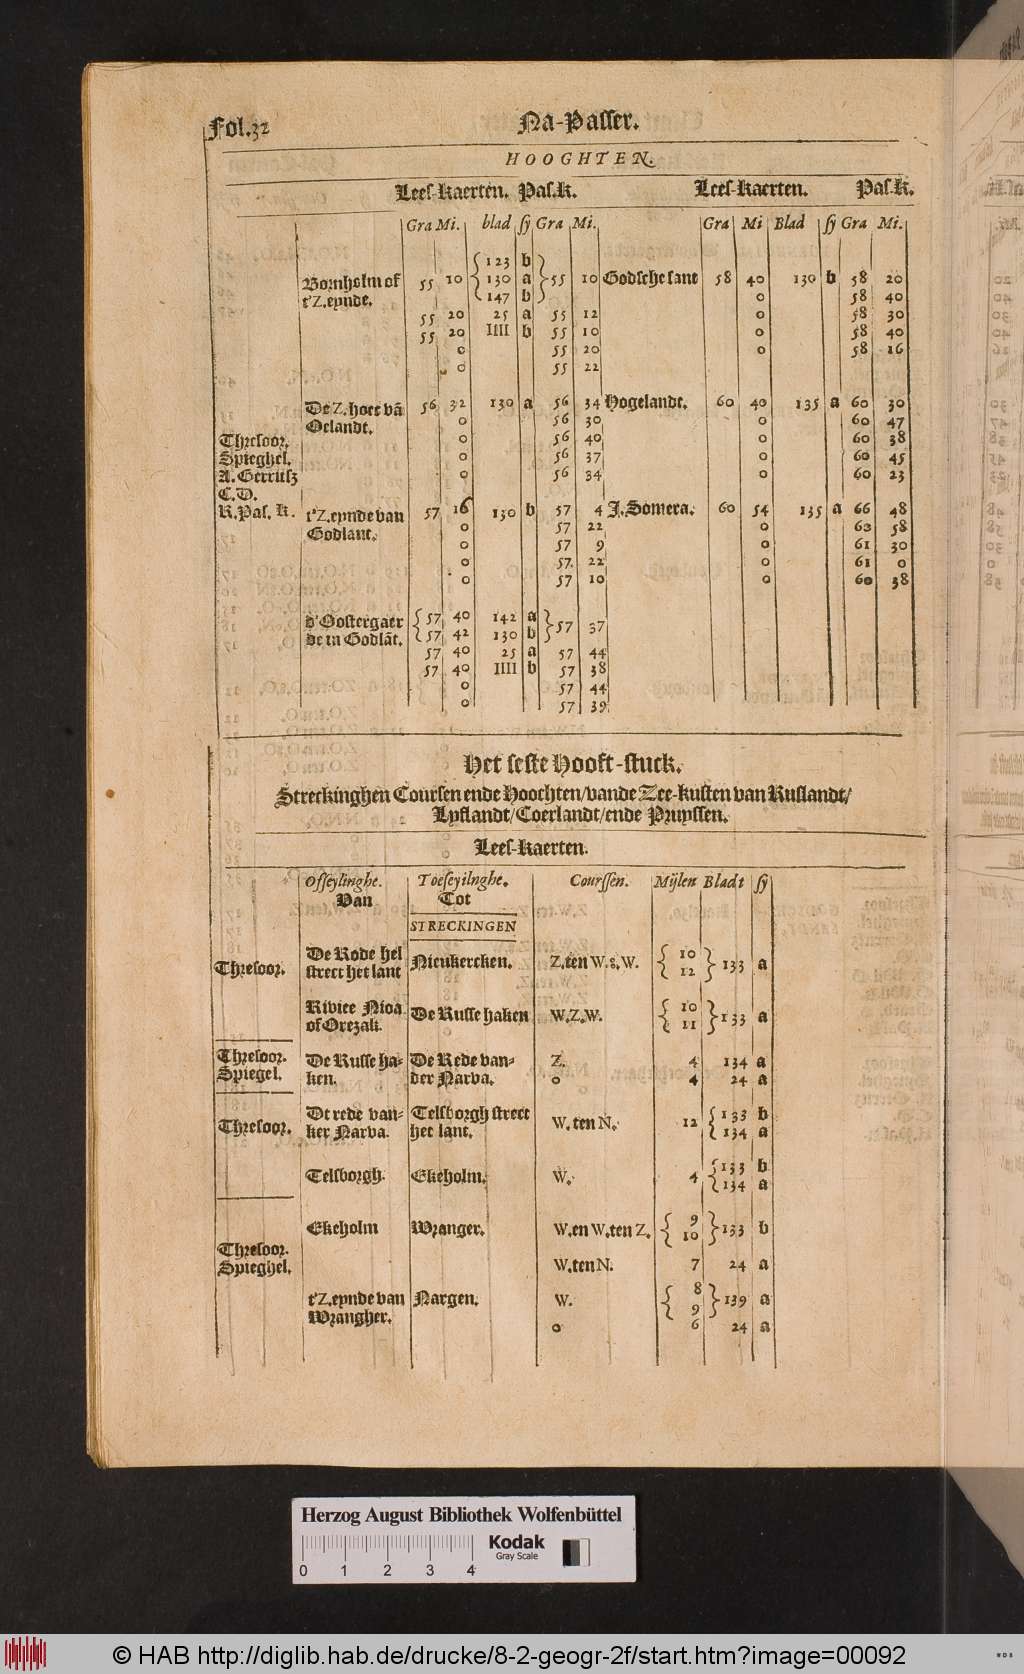 Fol.32 Na-Passer.
HOOGHTEN.
Lees-Kaerten. Pas.K. Lees-Kaerten. Pas.K.
Gra Mi. blad sy Gra Mi. Gra Mi Blad sy Gra Mi.
123 b
Bornholm of 55 10 130 a 55 10 Godsche sant 58 40 130 b 58 20
t'Z.eynde. 147 b 0 58 40
55 20 25 a 55 12 0 58 30
55 20 IIII b 55 10 0 58 40
0 55 20 0 58 16
0 55 22
De Z. hoec vā 56 32 130 a 56 34 Hogelandt. 60 40 135 a 60 30
Oelandt. 0 56 30 0 60 47
Thresoor. 0 56 40 0 60 38
Spieghel. 0 56 37 0 60 45
A. Gerritsz 0 56 34 0 60 23
C.D.
R.Pas. K. t'Z.eynde van 57 16 130 b 57 4 J.Somera. 60 54 135 a 66 48
Godlant. 0 57 22 0 60 58
0 57 9 0 61 30
0 57 22 0 61 0
0 57 10 0 60 38
d'Oostergaer { 57 40 142 a } 57 37
de in Godlāt. { 57 42 130 b
57 40 25 a 57 44
57 40 IIII b 57 38
0 57 44
0 57 39
Het seste Hooft-stuck.
Streckinghen Coursen ende Hoochten/vande Zee-kusten van Ruslandt/
Lyflandt/Coerlandt/ende Pruyssen.
Lees-Kaerten.
Ofseylinghe. Toeseyilnghe. Courssen. Mijlen Bladt sy
Van Tot
STRECKINGEN
Thresoor. De Rode hel Nieukercken. Z.ten W.&.W. { 10 } 133 a
strect het lant 12
Rivier Nioa De Russe haken W.Z.W. { 10 } 133 a
of Orezak. 11
Thresoor. De Russe ha= De Rede van= Z. 4 134 a
Spiegel. ken. der Narva. 0 4 24 a
Thresoor. Dt rede van= Telsborgh strect W. ten N. 12 { 133 b
ker Narva. het lant. 134 a
Telsborgh. Ekeholm. W. 4 { 133 b
134 a
Ekeholm Wranger. W.en W.ten Z. { 9 } 133 b
10
Thresoor.
Spieghel. W.ten N. 7 24 a
t'Z.eynde van Nargen. W. { 8 } 139 a
Wrangher. 9
0 6 24 a
Herzog August Bibliothek Wolfenbüttel
Kodak
Gray Scale
0 1 2 3 4
© HAB http://diglib.hab.de/drucke/8-2-geogr-2f/start.htm?image=00092